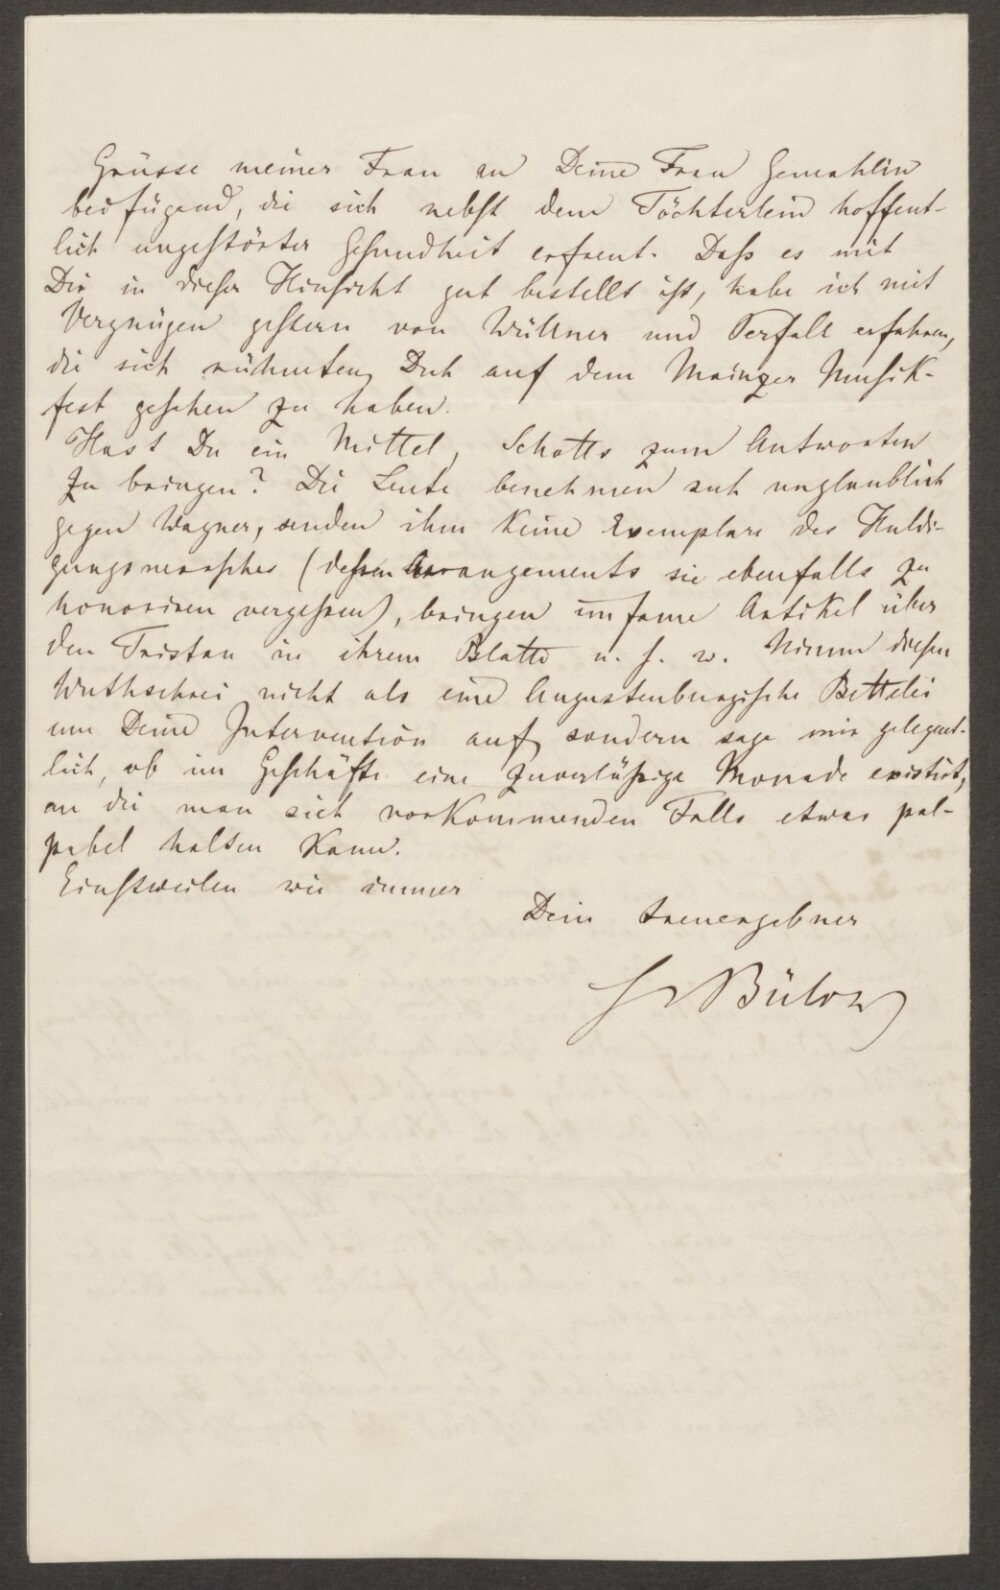 Grüsse meiner Frau an Deine Frau Gemahlin
beifügend, die sich nebst dem Töchterlein hoffent-
lich ungestörter Gesundheit erfreut. Daß es mit
Dir in dieser Hinsicht gut bestellt ist, habe ich mit
Vergnügen gestern von Wüllner und Perfall erfahren,
die sich rühmten, Dich auf dem Mainzer Musik-
fest gesehen zu haben.
Hast Du ein Mittel, Schotts zum Antworten
zu bringen? Die Leute benehmen sich unglaublich
gegen Wagner, senden ihm keine Exemplare des Huldi-
gungsmarsches (dessen Arrangements sie ebenfalls zu
honoriren vergessen), bringen infame Artikel über
den Tristan in ihrem Blatte u. s. w. Nimm diesen
Wuthschrei nicht als eine Augustenburgische Bettelei
um Deine Intervention auf, sondern sage mir gelegent-
lich, ob im Geschäfte eine zuverläßige Monade existirt,
an die man sich vorkommenden Falls etwas pal-
pabel halten kann.
Einstweilen wie immer
Dein treuergebner
HvBülow